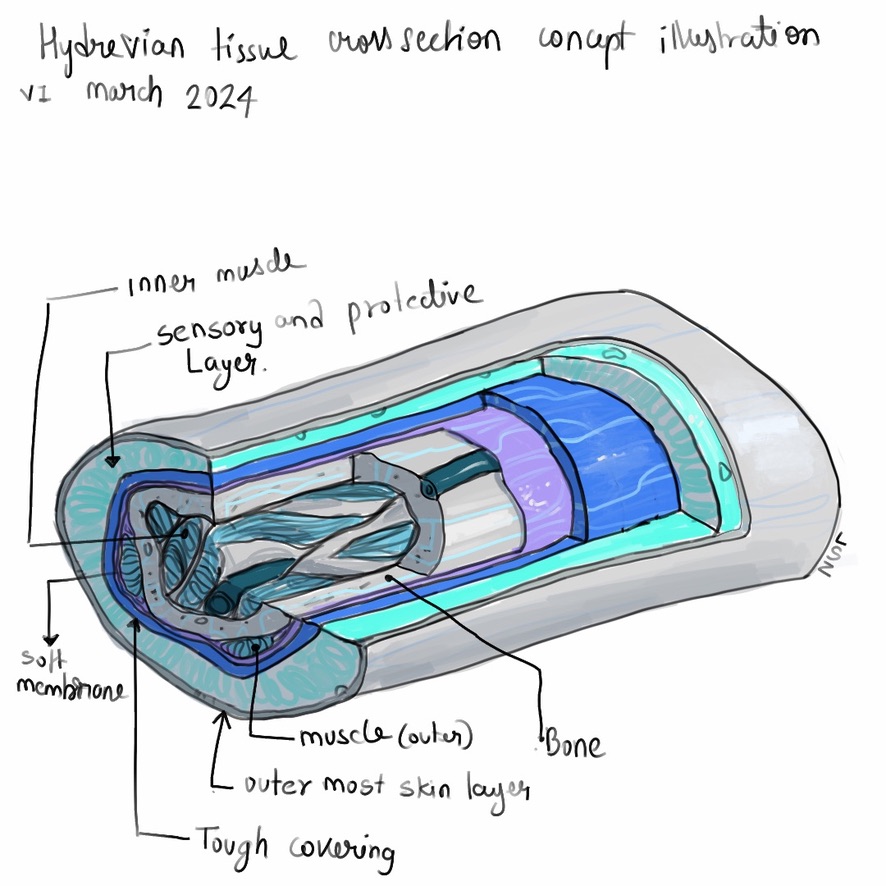 Hydrevian tissue cross section concept illustration
V1 march 2024
inner muscle
sensory and protective
Layer.
soft
membrane
muscle (outer)
Bone
outer most skin layer
Tough covering